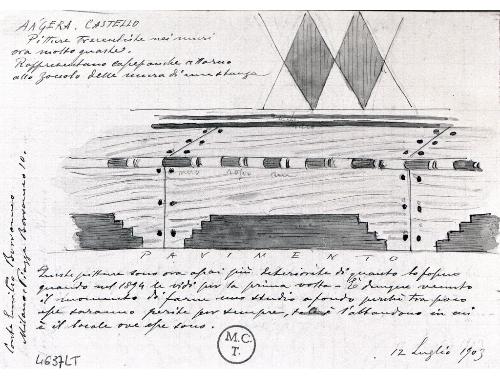 ANGERA. CASTELLO
Pitture trecentiste nei muri
ora molto guaste.
Rappresentano cassepanche attorno
allo zoccolo delle mura di una stanza
nero rosso
PAVIMENTO
Queste pitture sono ora assai più deteriorate di quanto lo fossero
quando nel 1894 le vidi per la prima volta - È dunque venuto
il momento di farne uno studio a fondo, perché tra poco
esse saranno perite per sempre, l'abbandono in cui
è il locale ove esse sono.
12 Luglio 1903
Conte Emilio Borromeo
Milano. Piazza Borromeo 10.
M.C.
T.
4637LT